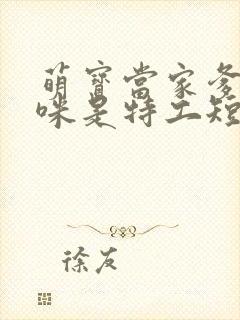 萌寶當家爹
咪是特工短
徐友